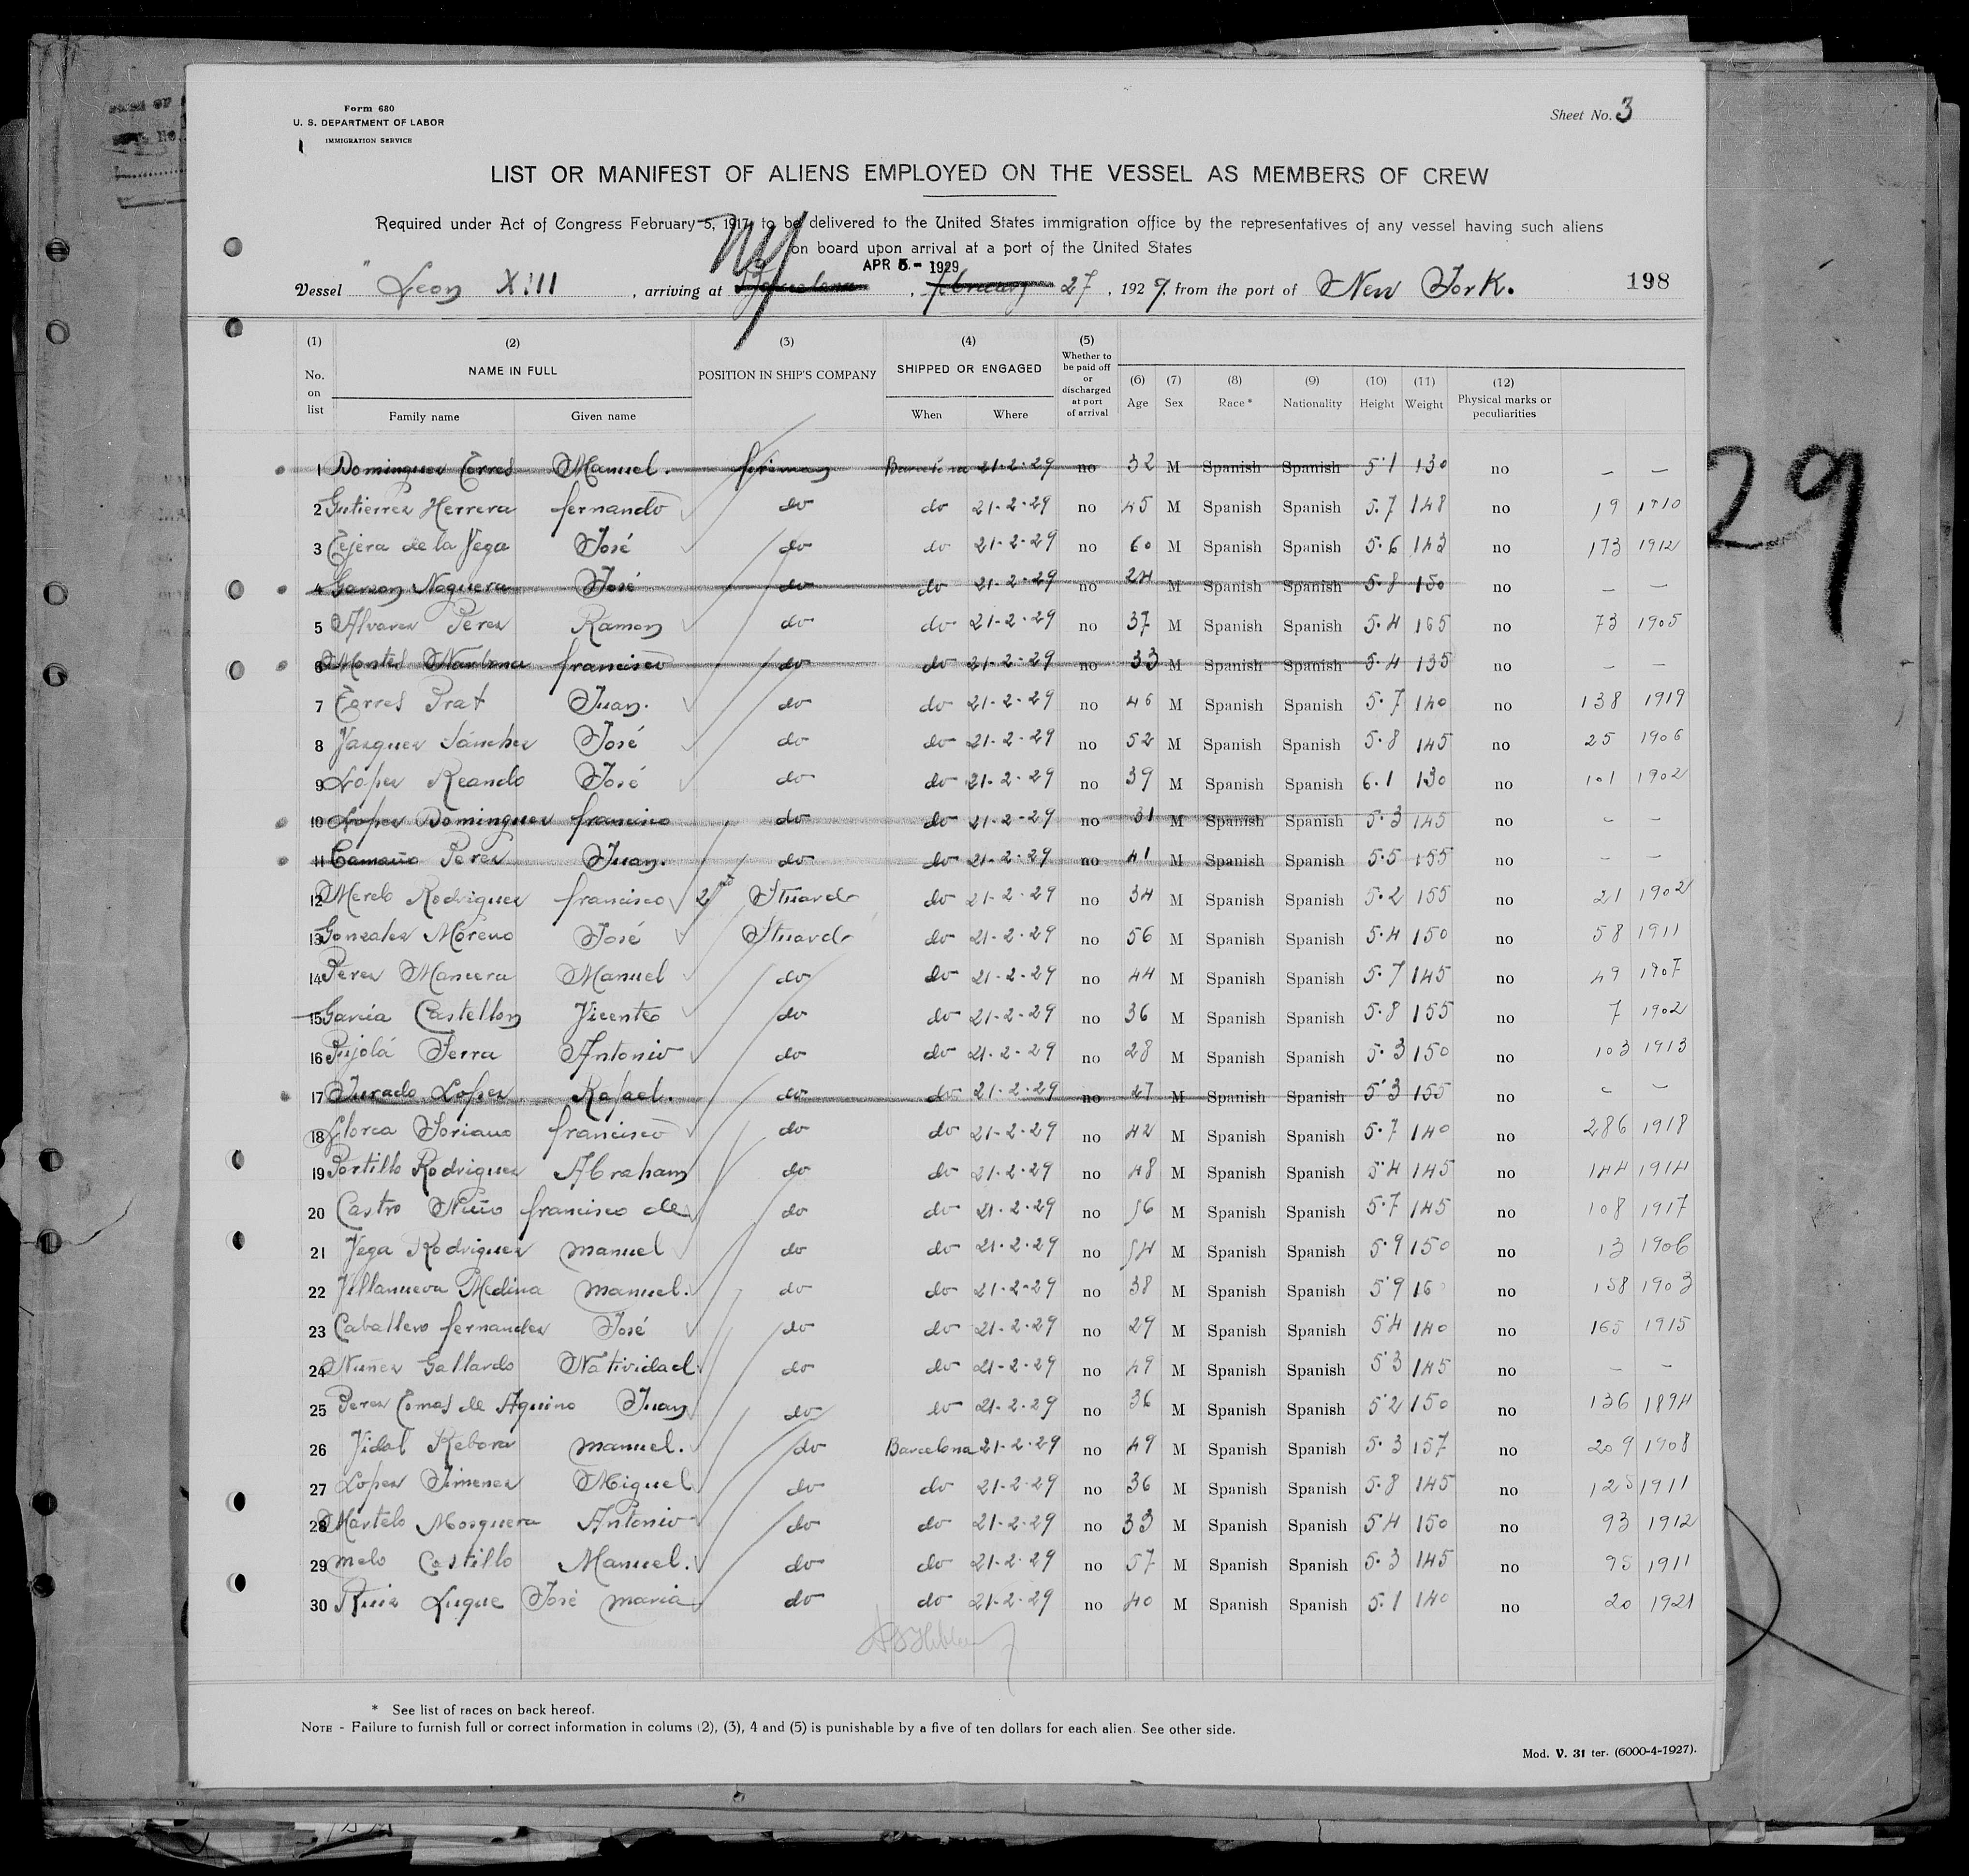 Form 680
U. S. DEPARTMENT OF LABOR
IMMIGRATION SERVICE
Sheet No. 3
LIST OR MANIFEST OF ALIENS EMPLOYED ON THE VESSEL AS MEMBERS OF CREW
Required under Act of Congress February 5, 1917, to be delivered to the United States immigration office by the representatives of any vessel having such aliens
on board upon arrival at a port of the United States
NY
APR 5 - 1929
Vessel " Leon XIII , arriving at Barcelona , february 27 , 1929, from the port of New York.
198
29
(1) (2) (3) (4) (5)
No. on list NAME IN FULL POSITION IN SHIP'S COMPANY SHIPPED OR ENGAGED Whether to be paid off or discharged at port of arrival (6) Age (7) Sex (8) Race * (9) Nationality (10) Height (11) Weight (12) Physical marks or peculiarities
Family name Given name When Where
1 Dominguez Torres Manuel. fireman Barcelona 21-2-29 no 32 M Spanish Spanish 5'1 130 no – –
2 Gutierrez Herrera fernando do do 21-2-29 no 45 M Spanish Spanish 5.7 148 no 19 1910
3 Tejera de la Vega José do do 21-2-29 no 60 M Spanish Spanish 5.6 143 no 173 1912
4 Garzon Noguera José do do 21-2-29 no 24 M Spanish Spanish 5.8 150 no – –
5 Alvarez Perez Ramon do do 21-2-29 no 37 M Spanish Spanish 5.4 165 no 73 1905
6 Montes francisco do do 21-2-29 no 33 M Spanish Spanish 5.4 135 no – –
7 Torres Prat Juan. do do 21-2-29 no 46 M Spanish Spanish 5.7 140 no 138 1919
8 Vazquez Sánchez José do do 21-2-29 no 52 M Spanish Spanish 5.8 145 no 25 1906
9 Lopez Reando José do do 21-2-29 no 39 M Spanish Spanish 6.1 130 no 101 1902
10 Lopez Dominguez francisco do do 21-2-29 no 31 M Spanish Spanish 5.3 145 no – –
11 Camaño Perez Juan. do do 21-2-29 no 41 M Spanish Spanish 5.5 155 no – –
12 Merelo Rodriguez francisco 2nd Stuard do 21-2-29 no 34 M Spanish Spanish 5.2 155 no 21 1902
13 Gonzalez Moreno José Stuard do 21-2-29 no 56 M Spanish Spanish 5.4 150 no 58 1911
14 Perez Mancera Manuel do do 21-2-29 no 44 M Spanish Spanish 5.7 145 no 49 1907
15 Garcia Castellon Vicente do do 21-2-29 no 36 M Spanish Spanish 5.8 155 no 7 1902
16 Pujolá Serra Antonio do do 21-2-29 no 28 M Spanish Spanish 5.3 150 no 103 1913
17 Jurado Lopez Rafael. do do 21-2-29 no 27 M Spanish Spanish 5'3 155 no – –
18 Llorca Soriano francisco do do 21-2-29 no 42 M Spanish Spanish 5.7 140 no 286 1918
19 Portillo Rodriguez Abraham do do 21-2-29 no 48 M Spanish Spanish 5'4 145 no 144 1914
20 Castro Niño francisco de do do 21-2-29 no 56 M Spanish Spanish 5.7 145 no 108 1917
21 Vega Rodriguez manuel do do 21-2-29 no 54 M Spanish Spanish 5.9 150 no 13 1906
22 Villanueva Medina manuel. do do 21-2-29 no 38 M Spanish Spanish 5'9 160 no 158 1903
23 Caballero fernandez José do do 21-2-29 no 29 M Spanish Spanish 5'4 140 no 165 1915
24 Nunez Gallardo Natividad. do do 21-2-29 no 49 M Spanish Spanish 5'3 145 no – –
25 Perez Tomas de Aquino Juan do do 21-2-29 no 36 M Spanish Spanish 5'2 150 no 136 1894
26 Vidal Rebora manuel. do Barcelona 21-2-29 no 49 M Spanish Spanish 5.3 157 no 209 1908
27 Lopez Jimenez Miguel do do 21-2-29 no 36 M Spanish Spanish 5.8 145 no 125 1911
28 Martelo Mosquera Antonio do do 21-2-29 no 33 M Spanish Spanish 5'4 150 no 93 1912
29 melo Castillo Manuel. do do 21-2-29 no 57 M Spanish Spanish 5.3 145 no 95 1911
30 Ruiz Luque José maria do do 21-2-29 no 40 M Spanish Spanish 5.1 140 no 20 1921
* See list of races on back hereof.
NOTE - Failure to furnish full or correct information in colums (2), (3), 4 and (5) is punishable by a five of ten dollars for each alien. See other side.
Mod. V. 31 ter. (6000-4-1927).